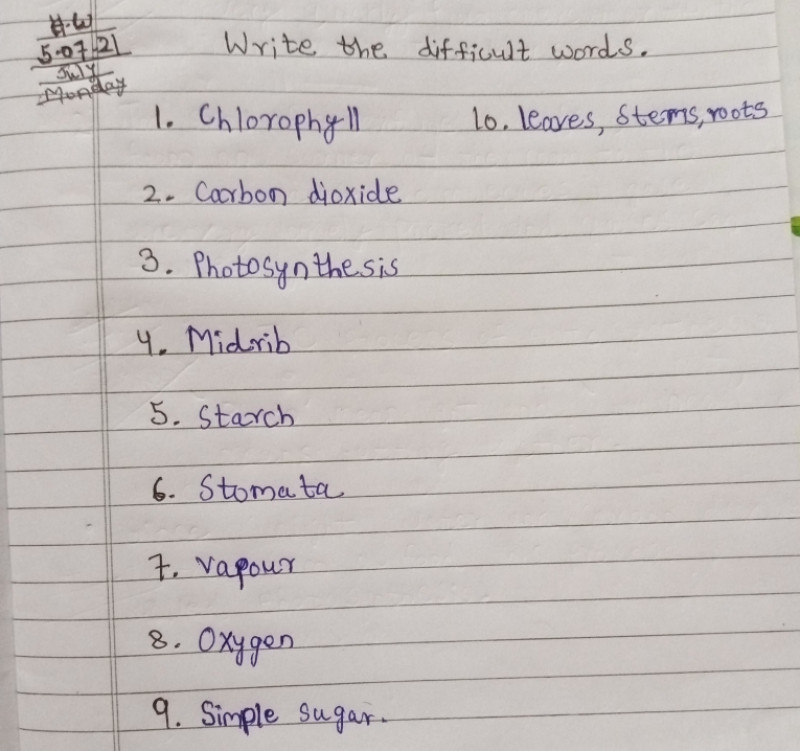 H.W
5.07.21
July
Monday
Write the difficult words.
1. Chlorophyll
10. leaves, stems, roots
2. Carbon dioxide
3. Photosynthesis
4. Midrib
5. Starch
6. Stomata
7. Vapour
8. Oxygen
9. Simple sugar.